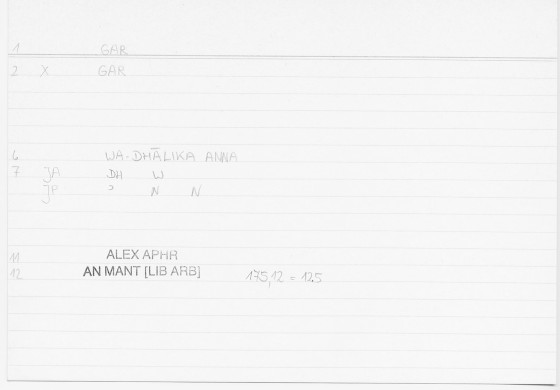 1 GAR
2 X GAR
6 WA-DHĀLIKA ANNA
7 JA DH W
JP ʾ N N
11 ALEX APHR
12 AN MANT [LIB ARB] 175,12 = 12.5